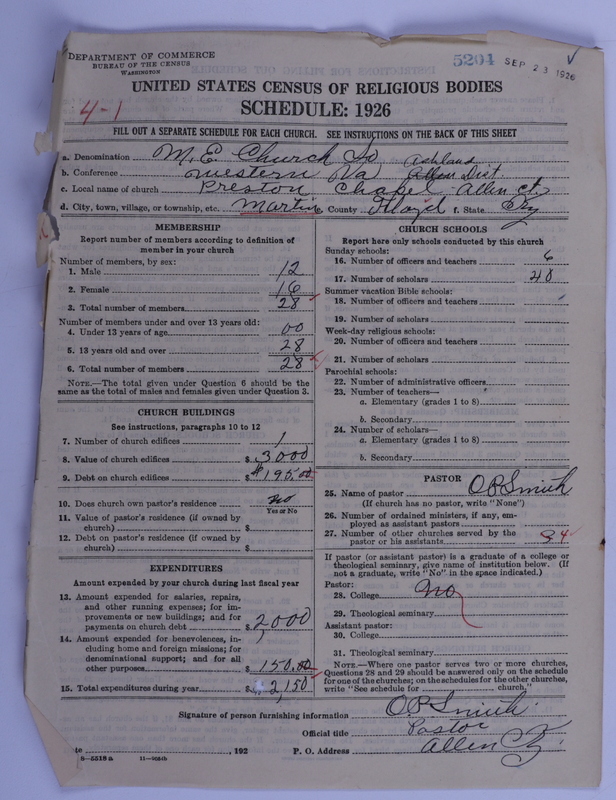 DEPARTMENT OF COMMERCE
BUREAU OF THE CENSUS
WASHINGTON
5204 SEP 23 1926
4-1
UNITED STATES CENSUS OF RELIGIOUS BODIES
SCHEDULE: 1926
FILL OUT A SEPARATE SCHEDULE FOR EACH CHURCH. SEE INSTRUCTIONS ON THE BACK OF THIS SHEET
a. Denomination M.E. Church So Ashland
b. Conference Western Va Dist.
c. Local name of church Preston Chapel Allen ct.
d. City, town, village, or township, etc. Martin e. County Floyd f. State Ky
MEMBERSHIP
Report number of members according to definition of member in your church
Number of members, by sex:
1. Male 12
2. Female 16
3. Total number of members 28
Number of members under and over 13 years old:
4. Under 13 years of age 00
5. 13 years old and over 28
6. Total number of members 28
NOTE.—The total given under Question 6 should be the same as the total of males and females given under Question 3.
CHURCH BUILDINGS
See instructions, paragraphs 10 to 12
7. Number of church edifices 1
8. Value of church edifices $ 3000
9. Debt on church edifices $ 195.00
10. Does church own pastor's residence no
Yes or No
11. Value of pastor's residence (if owned by church) $
12. Debt on pastor's residence (if owned by church) $
EXPENDITURES
Amount expended by your church during last fiscal year
13. Amount expended for salaries, repairs, and other running expenses; for improvements or new buildings; and for payments on church debt $ 2000
14. Amount expended for benevolences, including home and foreign missions; for denominational support; and for all other purposes $ 150.00
15. Total expenditures during year $ 2,150
CHURCH SCHOOLS
Report here only schools conducted by this church
Sunday schools:
16. Number of officers and teachers 6
17. Number of scholars 40
Summer vacation Bible schools:
18. Number of officers and teachers
19. Number of scholars
Week-day religious schools:
20. Number of officers and teachers
21. Number of scholars
Parochial schools:
22. Number of administrative officers
23. Number of teachers—
a. Elementary (grades 1 to 8)
b. Secondary
24. Number of scholars—
a. Elementary (grades 1 to 8)
b. Secondary
PASTOR
25. Name of pastor O P Smith
(If church has no pastor, write "None")
26. Number of ordained ministers, if any, employed as assistant pastors
27. Number of other churches served by the pastor or his assistants 4
If pastor (or assistant pastor) is a graduate of a college or theological seminary, give name of institution below. (If not a graduate, write "No" in the space indicated.)
Pastor:
28. College no
29. Theological seminary
Assistant pastor:
30. College
31. Theological seminary
NOTE.—Where one pastor serves two or more churches, Questions 28 and 29 should be answered only on the schedule for one of the churches; on the schedules for the other churches, write "See schedule for church."
Signature of person furnishing information O.P. Smith
Official title Pastor
te , 192 P. O. Address Allen Ky.
8—5518a